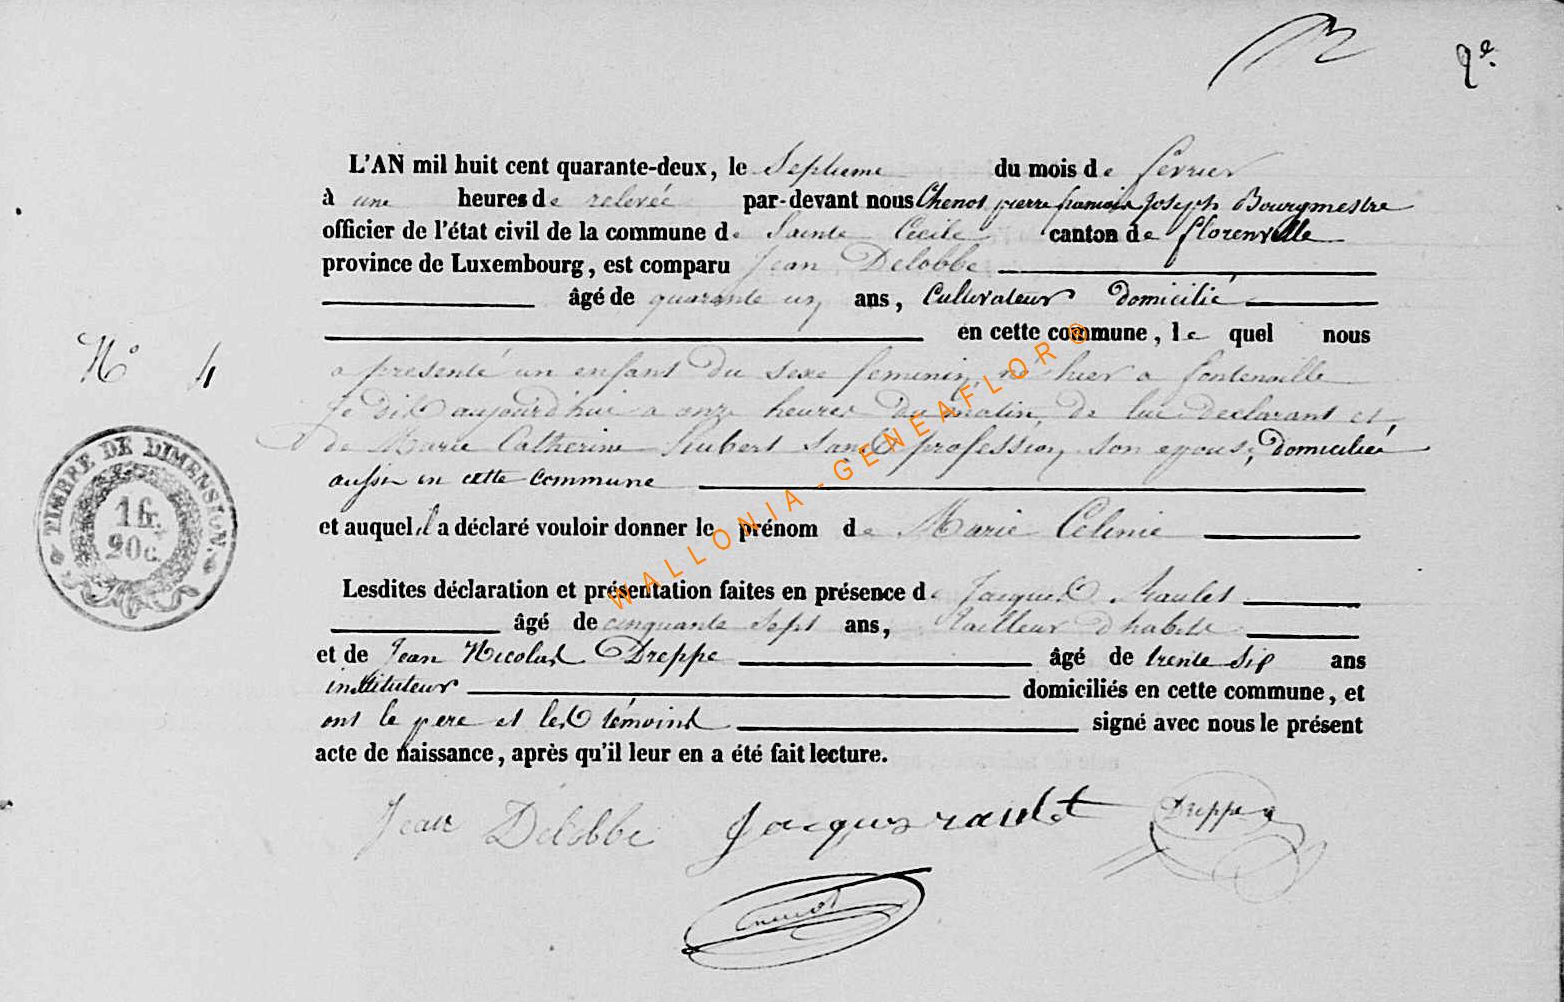 2e.
L'AN mil huit cent quarante-deux, le Septieme du mois de fevrier
à une heures de relevée par-devant nous Chenot pierre francois Joseph Bourgmestre
officier de l'état civil de la commune de Sainte Cécile canton de florenville
province de Luxembourg, est comparu Jean Delobbe
âgé de quarante un ans, Cultivateur domicilié
en cette commune, le quel nous
N° 4
a présenté un enfant du sexe feminin, né hier a fontenoille
Je dis aujourd'hui a onze heures du matin, de lui declarant et
de Marie Catherine Hubert sans profession, son epouse, domiciliée
aussi en cette commune
et auquel il a déclaré vouloir donner le prénom de Marie Celinie
Lesdites déclaration et présentation faites en présence de Jacques Raulet
âgé de cinquante sept ans, tailleur d'habits
et de Jean Nicolas Dreppe âgé de trente six ans
instituteur domiciliés en cette commune, et
ont le pere et les témoins signé avec nous le présent
acte de naissance, après qu'il leur en a été fait lecture.
Jean Delobbe Jacques raulet Dreppe
Chenot
TIMBRE DE DIMENSION.
1 fr.
20 c.
WALLONIA - GENEAFLOR ®